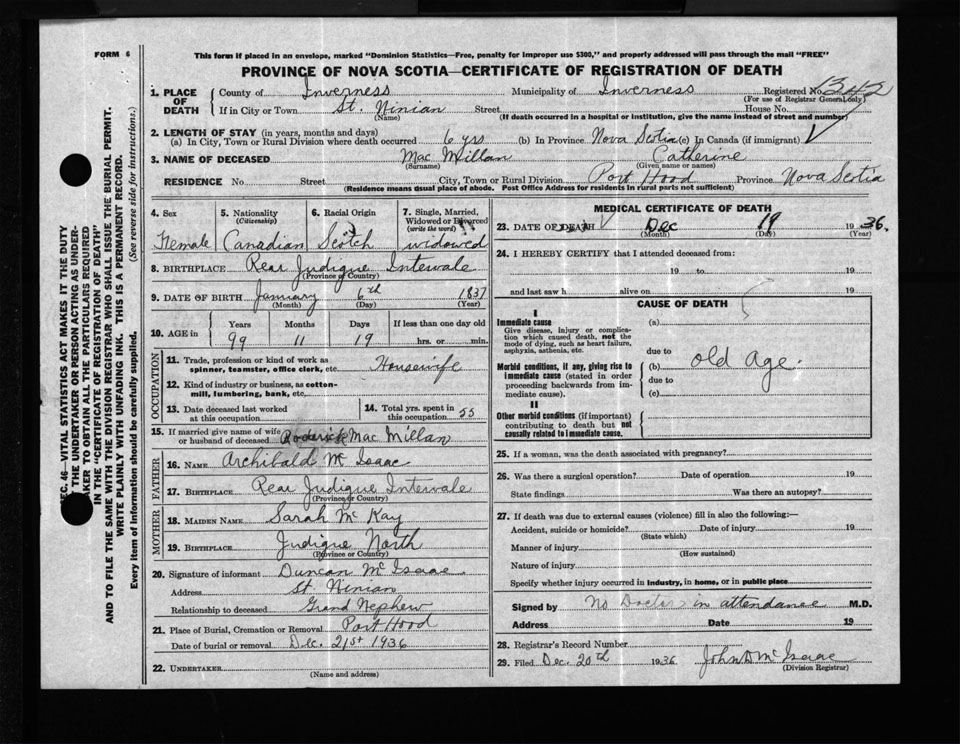 FORM 6
This form if placed in an envelope, marked "Dominion Statistics—Free, penalty for improper use $300," and properly addressed will pass through the mail "FREE"
PROVINCE OF NOVA SCOTIA—CERTIFICATE OF REGISTRATION OF DEATH
1. PLACE OF DEATH County of Inverness Municipality of Inverness Registered No. 1342
(For use of Registrar General only)
If in City or Town St. Ninian Street House No.
(Name) (If death occurred in a hospital or institution, give the name instead of street and number)
2. LENGTH OF STAY (in years, months and days)
(a) In City, Town or Rural Division where death occurred 6 yrs (b) In Province Nova Scotia (c) In Canada (if immigrant)
3. NAME OF DECEASED Mac Millan Catherine
(Surname) (Given name or names)
RESIDENCE No. Street City, Town or Rural Division Port Hood Province Nova Scotia
(Residence means usual place of abode. Post Office Address for residents in rural parts not sufficient)
4. Sex Female
5. Nationality (Citizenship) Canadian
6. Racial Origin Scotch
7. Single, Married, Widowed or Divorced (write the word) widowed
8. BIRTHPLACE Rear Judique Intervale
(Province or Country)
9. DATE OF BIRTH January 6th 1837
(Month) (Day) (Year)
10. AGE in Years Months Days If less than one day old
99 11 19 hrs. or min.
OCCUPATION
11. Trade, profession or kind of work as spinner, teamster, office clerk, etc. Housewife
12. Kind of industry or business, as cotton-mill, lumbering, bank, etc.
13. Date deceased last worked at this occupation
14. Total yrs. spent in this occupation 55
15. If married give name of wife or husband of deceased Roderick Mac Millan
FATHER
16. NAME Archibald Mc Isaac
17. BIRTHPLACE Rear Judique Intervale
(Province or Country)
MOTHER
18. MAIDEN NAME Sarah Mc Kay
19. BIRTHPLACE Judique North
(Province or Country)
20. Signature of informant Duncan Mc Isaac
Address St Ninian
Relationship to deceased Grand Nephew
21. Place of Burial, Cremation or Removal Port Hood
Date of burial or removal Dec. 21st 1936
22. UNDERTAKER
(Name and address)
MEDICAL CERTIFICATE OF DEATH
23. DATE OF DEATH Dec 19 1936.
(Month) (Day) (Year)
24. I HEREBY CERTIFY that I attended deceased from:
19 to 19
and last saw h alive on 19
CAUSE OF DEATH
I
Immediate cause (a)
Give disease, injury or complication which caused death, not the mode of dying, such as heart failure, asphyxia, asthenia, etc.
due to
Morbid conditions, if any, giving rise to immediate cause (stated in order proceeding backwards from immediate cause).
(b) old Age.
due to
(c)
II
Other morbid conditions (if important) contributing to death but not causally related to immediate cause.
25. If a woman, was the death associated with pregnancy?
26. Was there a surgical operation? Date of operation 19
State findings Was there an autopsy?
27. If death was due to external causes (violence) fill in also the following:—
Accident, suicide or homicide? Date of injury 19
(State which)
Manner of injury
(How sustained)
Nature of injury
Specify whether injury occurred in industry, in home, or in public place
Signed by No Doctor in attendance M.D.
Address Date 19
28. Registrar's Record Number
29. Filed Dec. 20th 1936 John D Mc Isaac
(Division Registrar)
SEC. 46—VITAL STATISTICS ACT MAKES IT THE DUTY
THE UNDERTAKER OR PERSON ACTING AS UNDER-
TAKER TO OBTAIN ALL THE PARTICULARS REQUIRED
IN THE "CERTIFICATE OF REGISTRATION OF DEATH"
AND TO FILE THE SAME WITH THE DIVISION REGISTRAR WHO SHALL ISSUE THE BURIAL PERMIT.
WRITE PLAINLY WITH UNFADING INK. THIS IS A PERMANENT RECORD.
Every item of information should be carefully supplied. (See reverse side for instructions.)